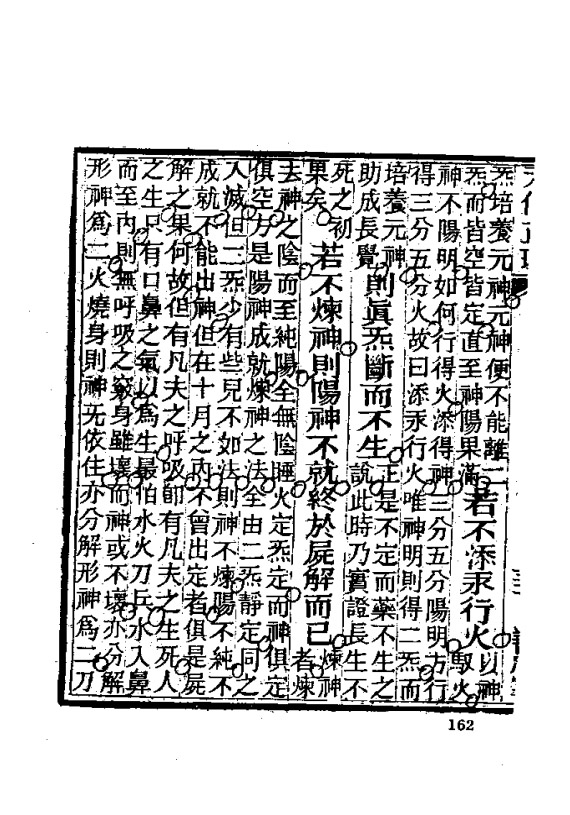 炁培養元神元神便不能離二
炁而皆空皆定直至神陽果滿
若不添汞行火
以神
馭火
神不陽明如何行得火添得神三分五分陽明方行
得三分五分火故曰添汞行火唯神明則得二炁而
培養元神
助成長覺
則眞炁斷而不生
正是不定而藥不生之
說此時乃實證長生不
死之初
果矣
若不煉神則陽神不就終於屍解而已
煉神
者煉
去神之陰而至純陽全無陰睡火定炁定而神俱定
俱空方是陽神成就煉神之法全由二炁靜定同之
入滅但二炁少有些兒不如法則神不煉陽不純不
成就不能出神但在十月之內不曾出定者俱是屍
解之果何故但有凡夫之呼吸卽有凡夫之生死人
之生只有口鼻之氣以爲生最怕水火刀兵水入鼻
而至內則無呼吸之竅身雖壞而神或不壞亦分解
形神爲二火燒身則神无依住亦分解形神爲二刀
162